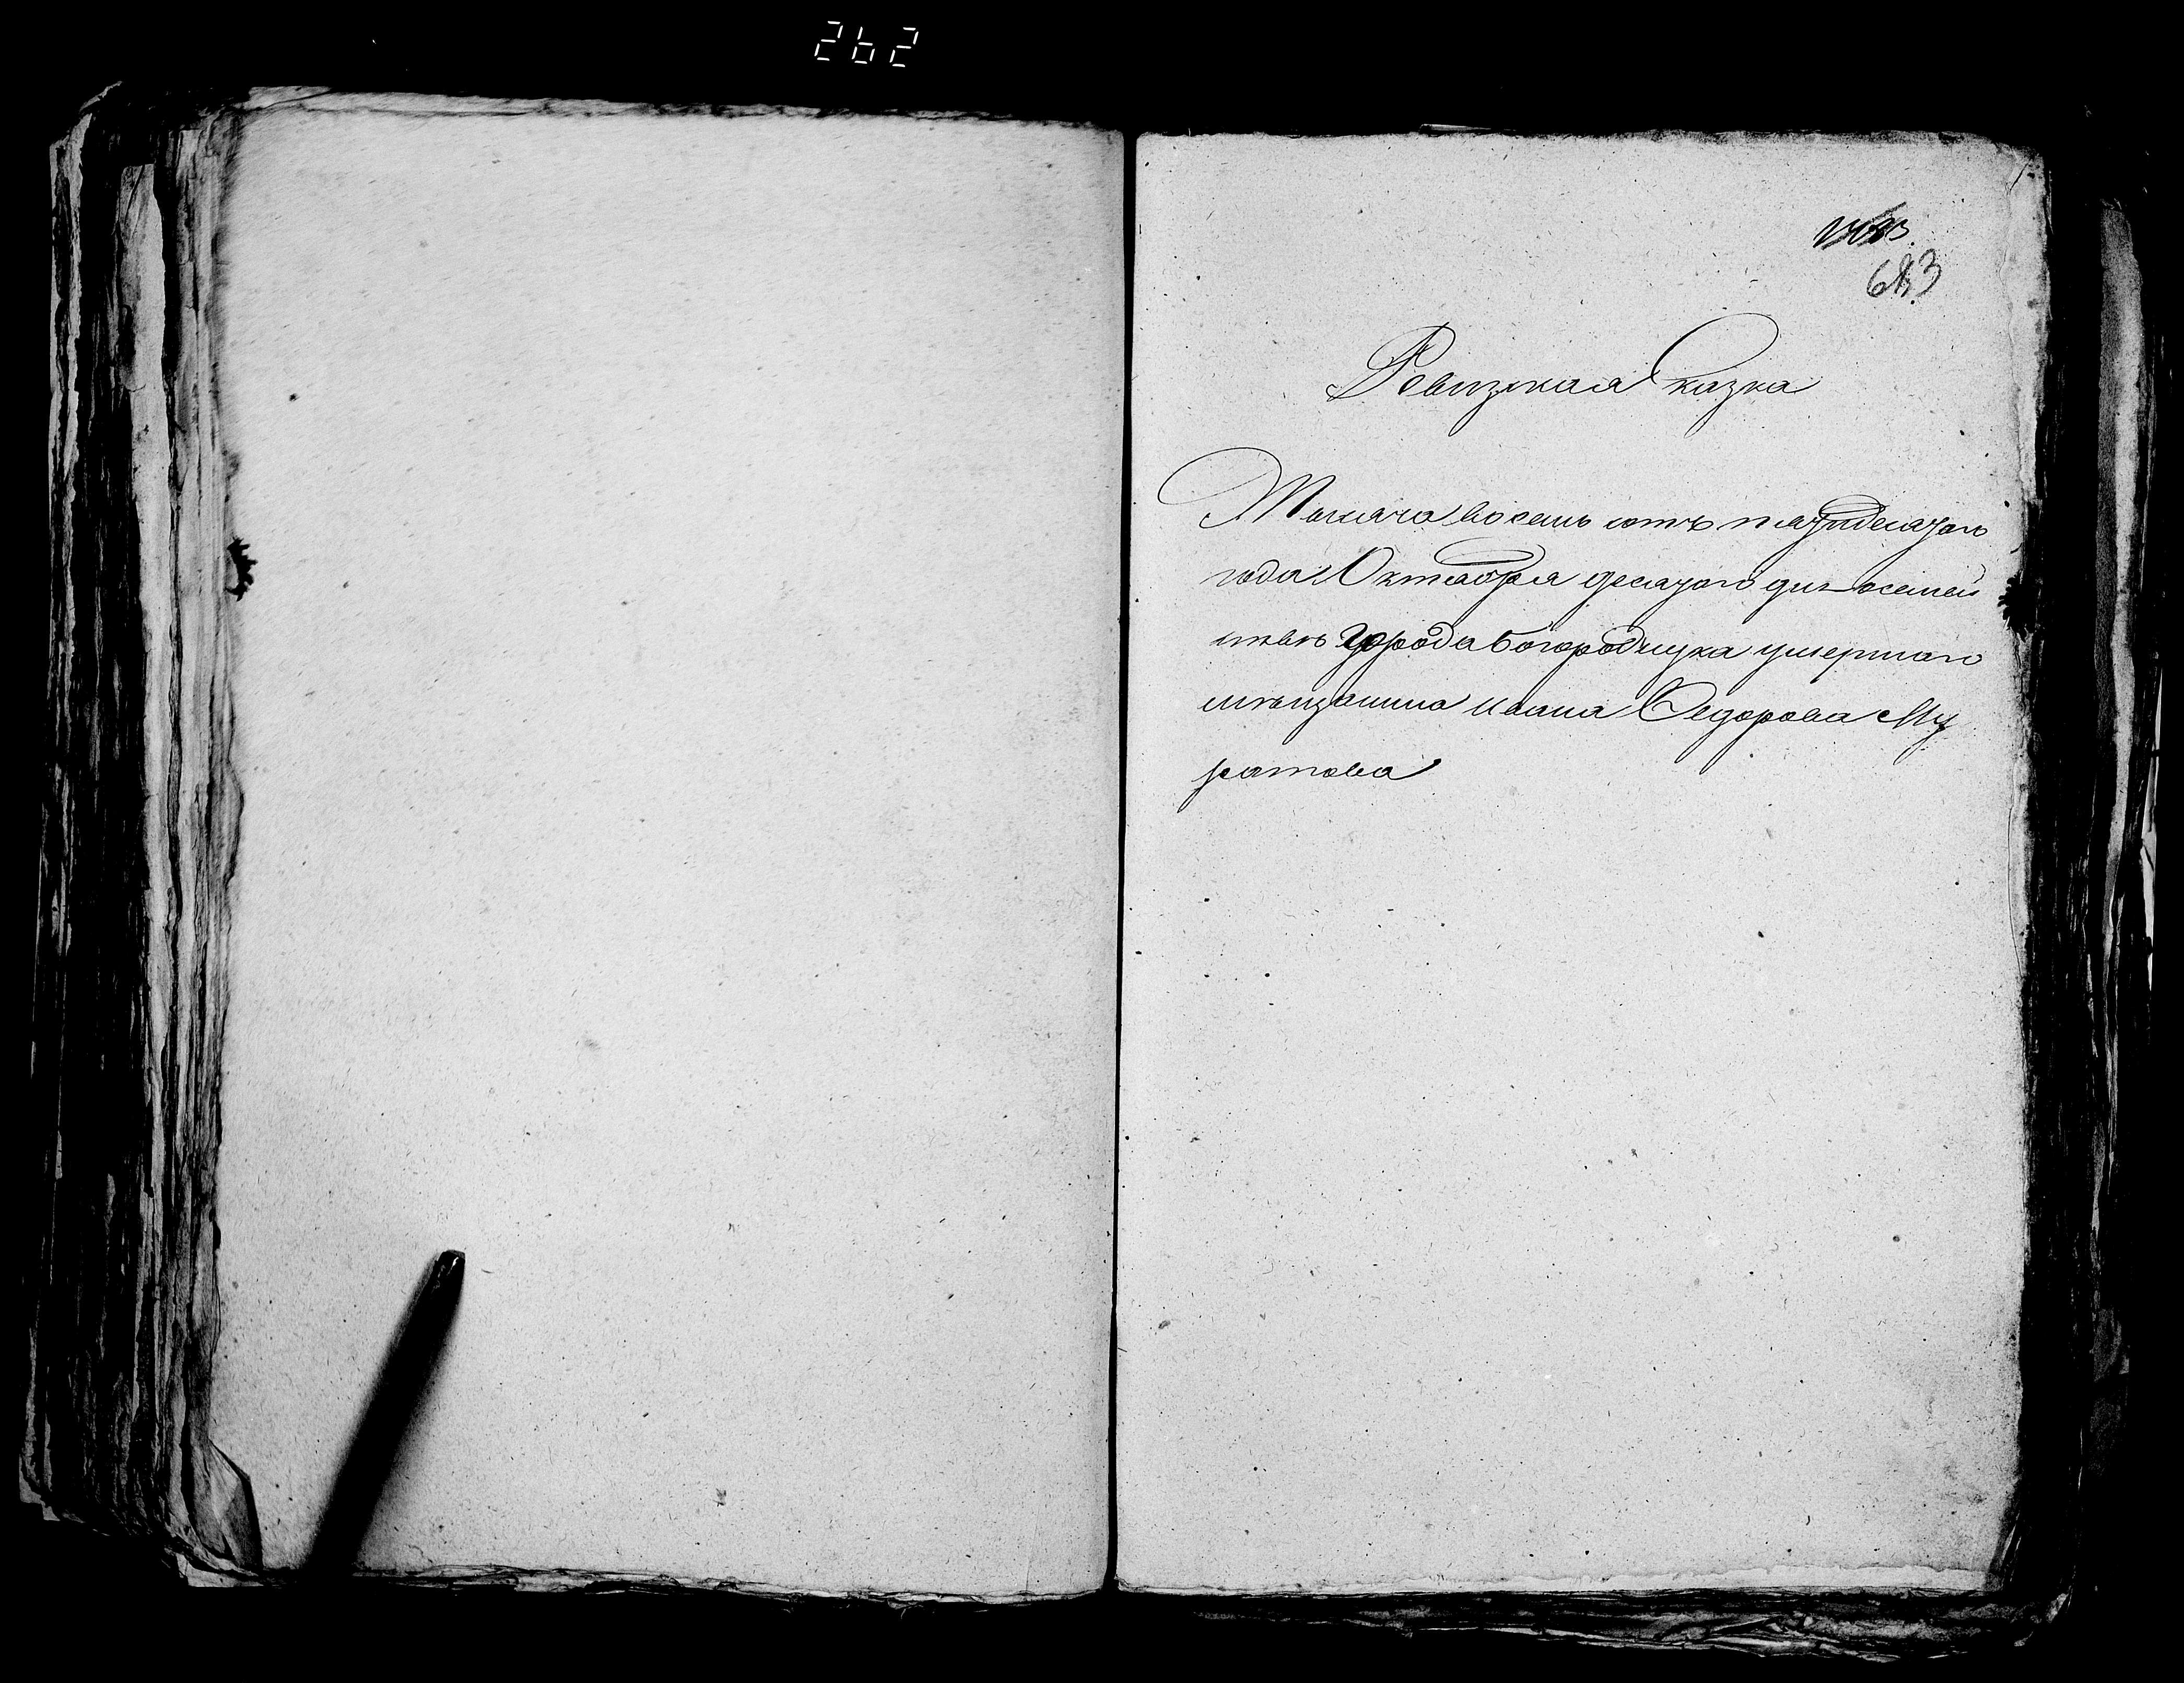 262
683
Ревизская Сказка
Тысяча восемь сотъ пятдесятого
года Октября десятого дня о семей
стве города Богородицка умершаго
мещанина Ивана Федорова Му
ратова